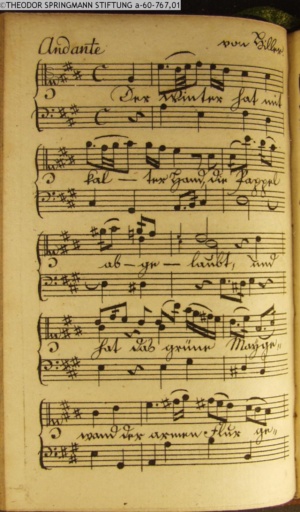 ©THEODOR SPRINGMANN STIFTUNG a-60-767,01
Andante
von Hiller
Der Winter hat mit
kal - ter Hand, die Pappel
ab - ge - laubt, und
hat das grüne Mayge=
wand der armen Flur ge=